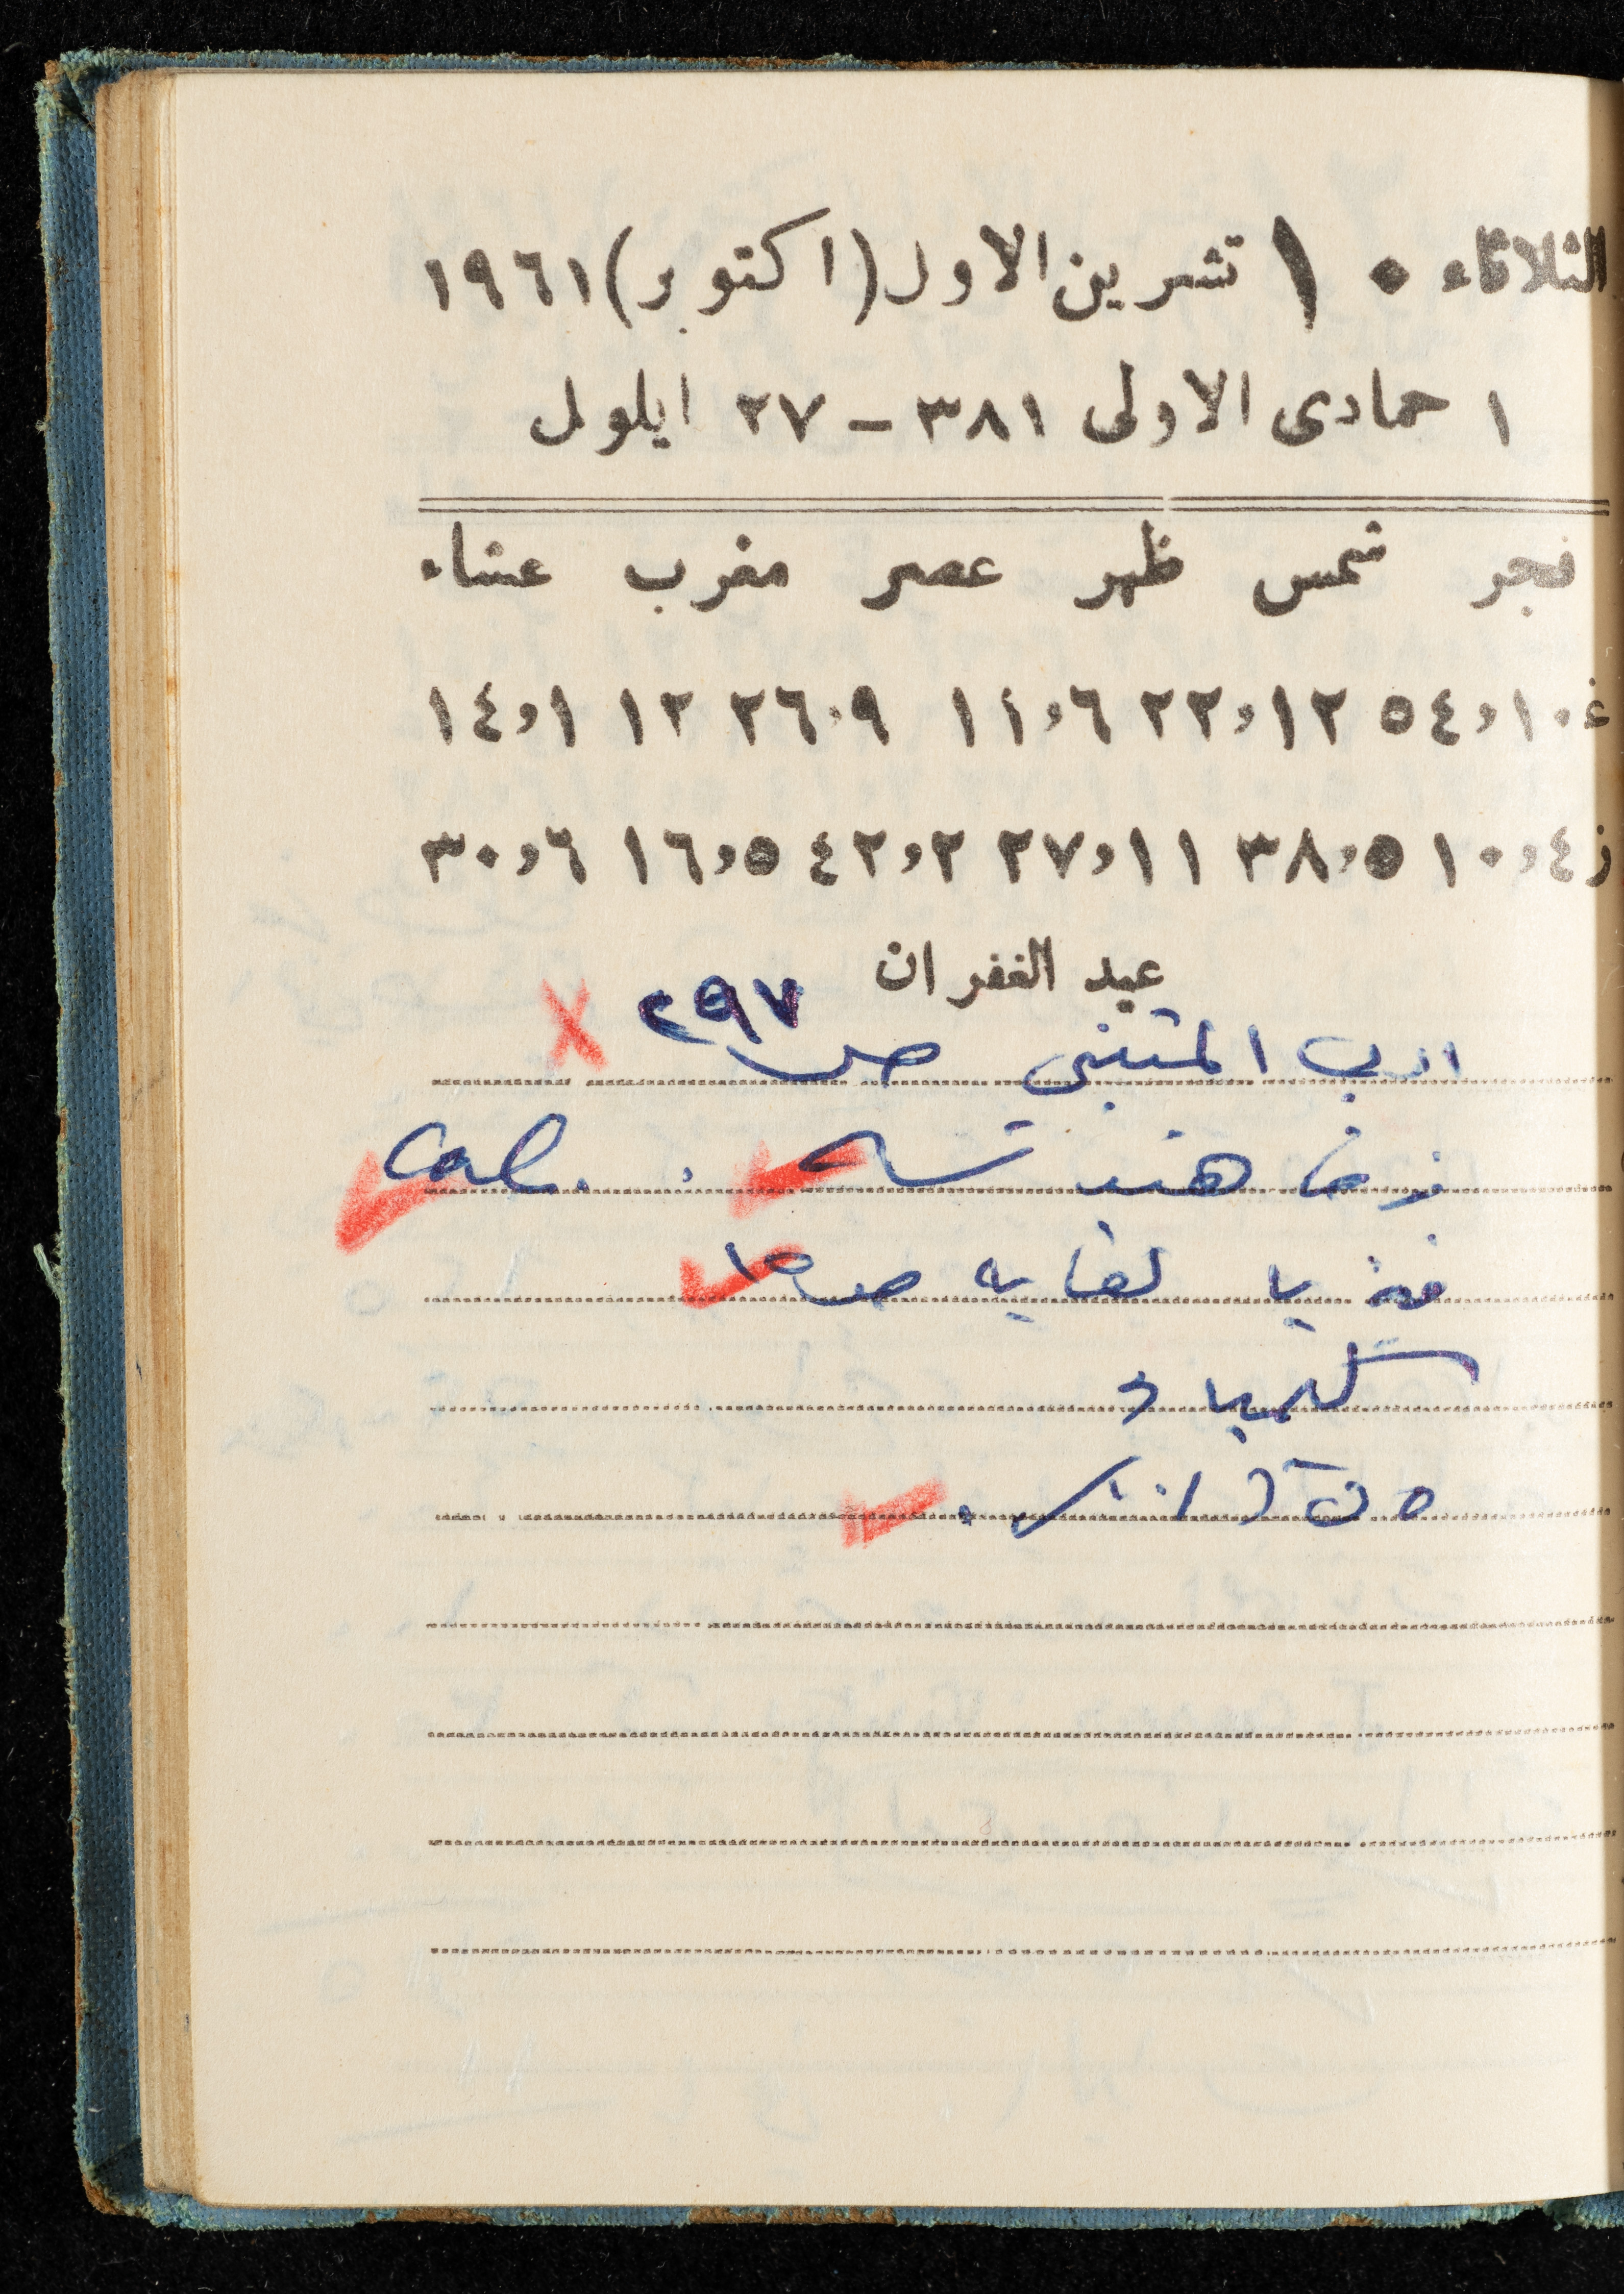 الثلاثاء ١٠ تشرين الاول (اكتوبر) ١٩٦١
١ جمادى الاولى ٣٨١ – ٢٧ ايلول
فجر شمس ظهر عصر مغرب عشاء
غ ١٠،٥٤ ١٢،٢٢ ٦،١١ ٩،٢٦ ١٢ ١،١٤
ز ٤،١٠ ٥،٣٨ ١١،٢٧ ٢،٤٢ ٥،١٦ ٦،٣٠
عيد الغفران
ادب المتنبي ص ٢٩٧ X
هندسة . Cal.
فيزيا لغاية ص
كيمياء